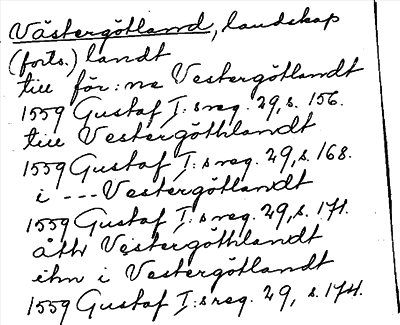 Västergötland, landskap
(forts.) landt
till för: na Vestergötlandt
1559 Gustaf I:s reg. 29, s. 156.
till Vestergöthlandt
1559 Gustaf I:s reg. 29, s. 168.
i --- Vestergötlandt
1559 Gustaf I:s reg. 29, s. 171.
åth Vestergöthlandt
ihn i Vestergötlandt
1559 Gustaf I:s reg. 29, s. 174.